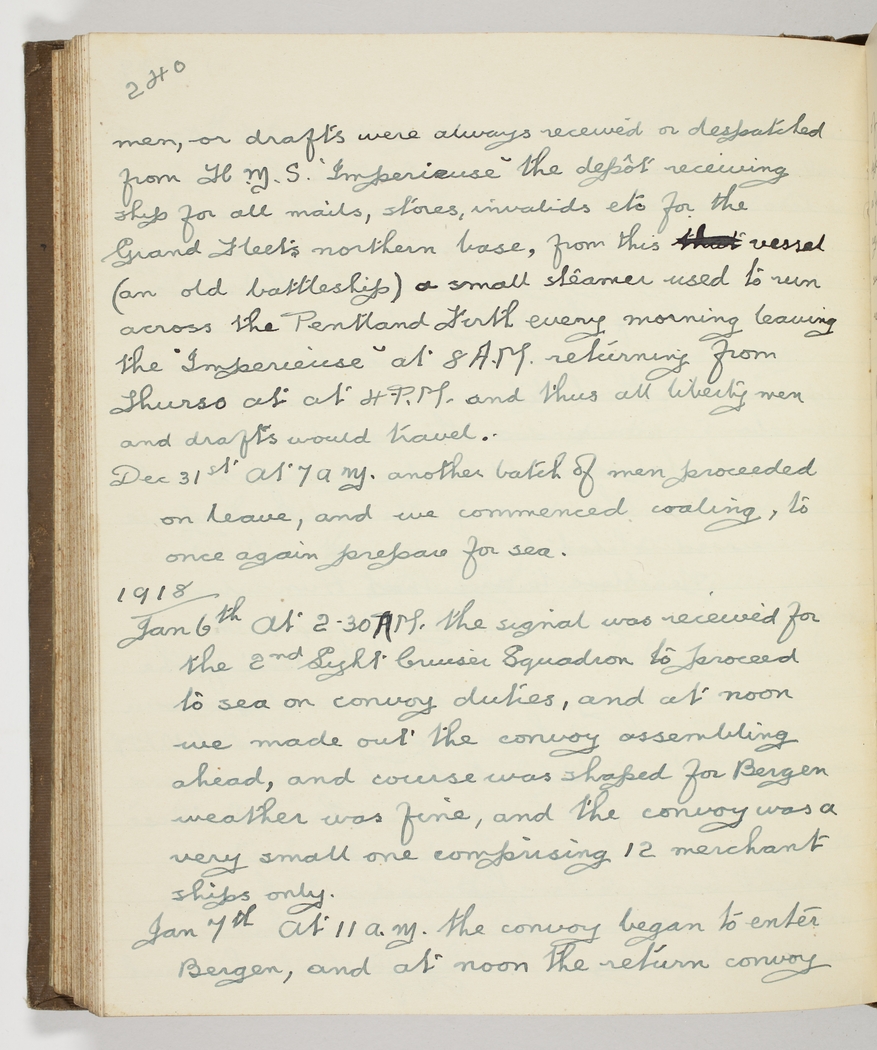 240
men, or drafts were always received or despatched
from H.M.S. "Imperieuse" the depôt receiving
ship for all mails, stores, invalids etc for the
Grand Fleets northern base, from this that vessel
(an old battleship) a small steamer used to run
across the Pentland Firth every morning leaving
the "Imperieuse" at 8 A.M. returning from
Thurso at at 4 P.M. and thus all liberty men
and drafts would travel.
Dec 31st At 7 a m. another batch of men proceeded
on leave, and we commenced coaling, to
once again prepare for sea.
1918
Jan 6th At 2-30 A M. the signal was received for
the 2nd Light Cruiser Squadron to proceed
to sea on convoy duties, and at noon
we made out the convoy assembling
ahead, and course was shaped for Bergen
weather was fine, and the convoy was a
very small one comprising 12 merchant
ships only.
Jan 7th At 11 a.m. the convoy began to enter
Bergen, and at noon the return convoy